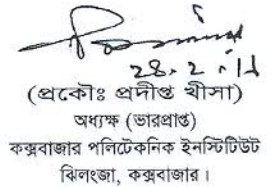 28.2.18
(প্রকৌঃ প্রদীপ্ত খীসা)
অধ্যক্ষ (ভারপ্রাপ্ত)
কক্সবাজার পলিটেকনিক ইনস্টিটিউট
ঝিলংজা, কক্সবাজার।